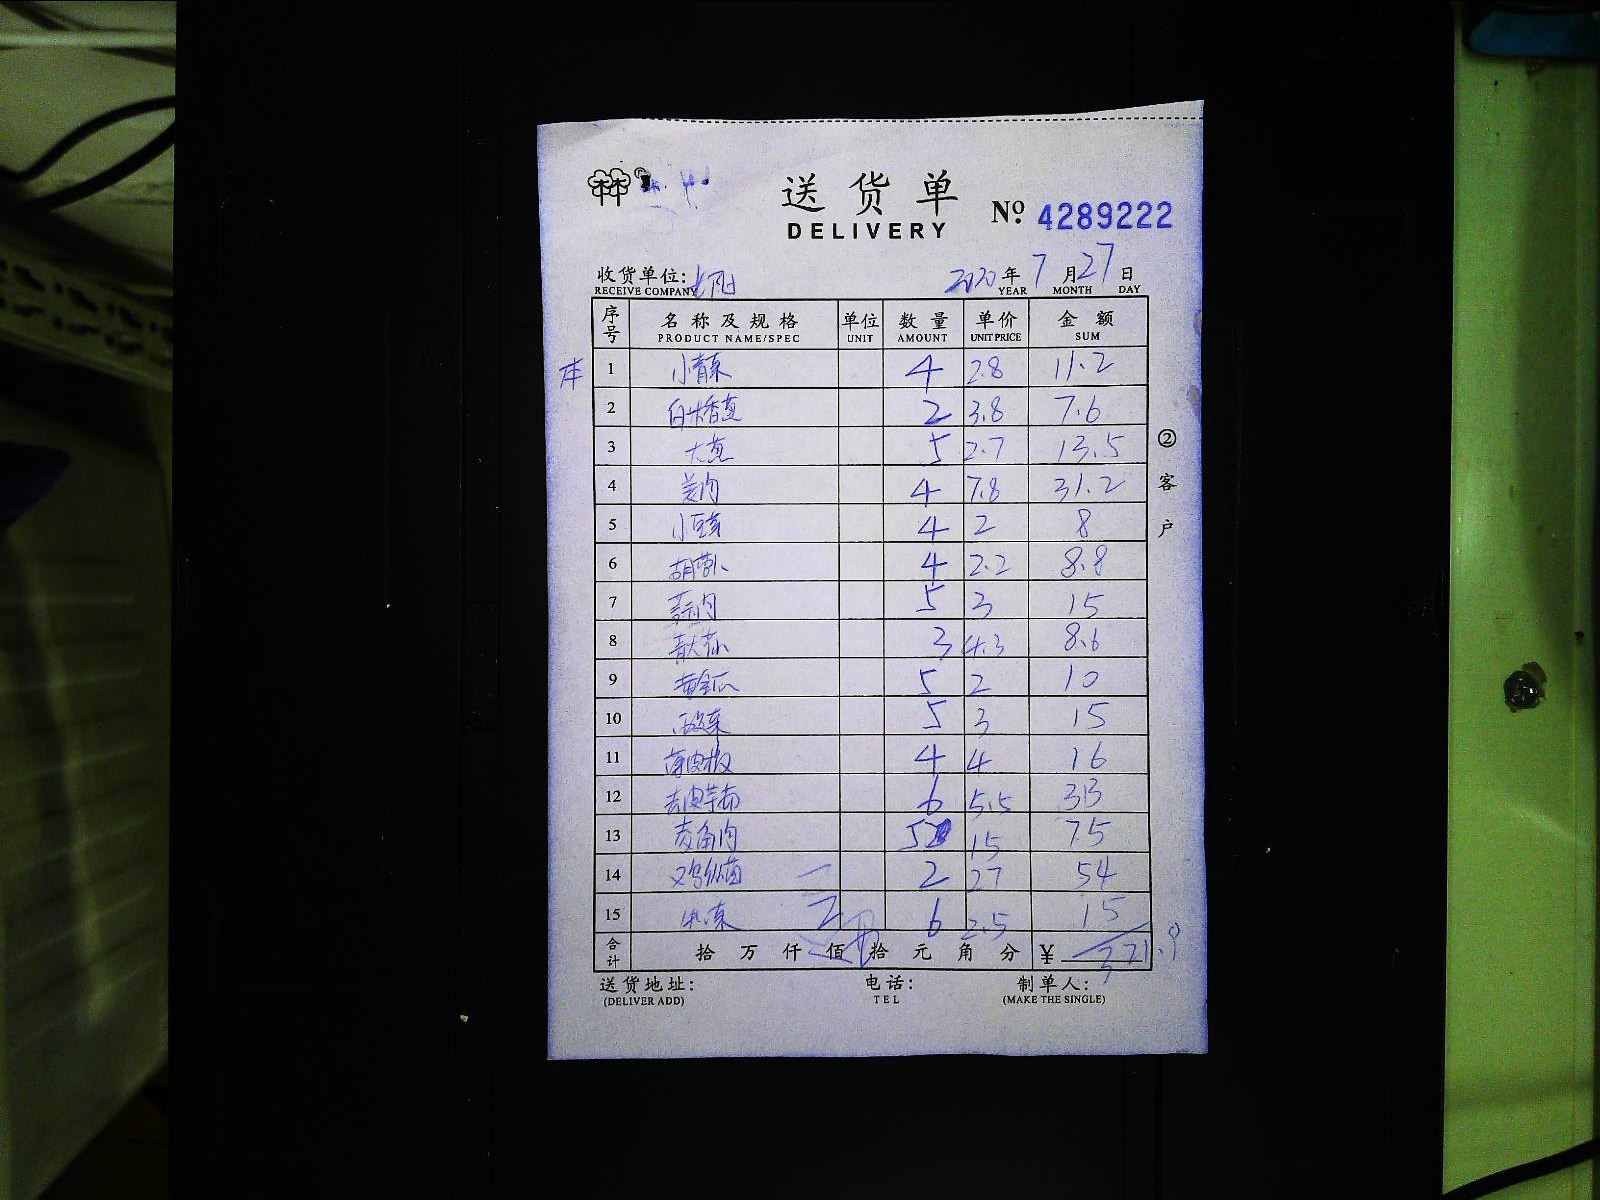 送货单
DELIVERY
No 4289222
收货单位:
RECEIVE COMPANY
2020年7月27日
YEAR MONTH DAY
序号 名称及规格 单位 数量 单价 金额
PRODUCT NAME/SPEC UNIT AMOUNT UNIT PRICE SUM
1 小青菜 4 2.8 11.2
2 2 3.8 7.6
3 大葱 5 2.7 13.5
4 姜肉 4 7.8 31.2
5 4 2 8
6 胡萝卜 4 2.2 8.8
7 蒜肉 5 3 15
8 3 4.3 8.6
9 黄金瓜 5 2 10
10 5 3 15
11 薄皮椒 4 4 16
12 去皮芋艿 6 5.5 33
13 菱角肉 5 15 75
14 鸡枞菌 2 27 54
15 6 2.5 15
合计 拾万仟佰拾元角分 ¥ 321.9
② 客户
送货地址: 电话: 制单人:
(DELIVER ADD) TEL (MAKE THE SINGLE)